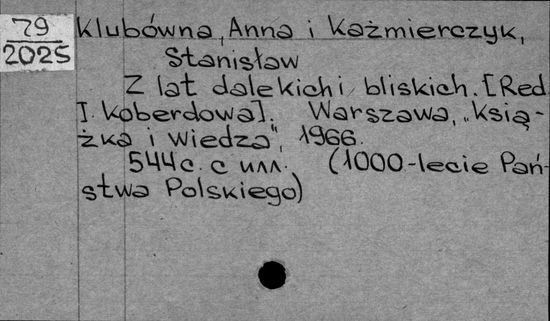 79
2025
Klubówna, Anna i Kaźmierczyk,
Stanisław
Z lat dalekich i bliskich. [Red
I. Koberdowa]. Warszawa, „Ksią-
żka i wiedza", 1966.
544 с. с илл. (1000-lecie Pań-
stwa Polskiego)